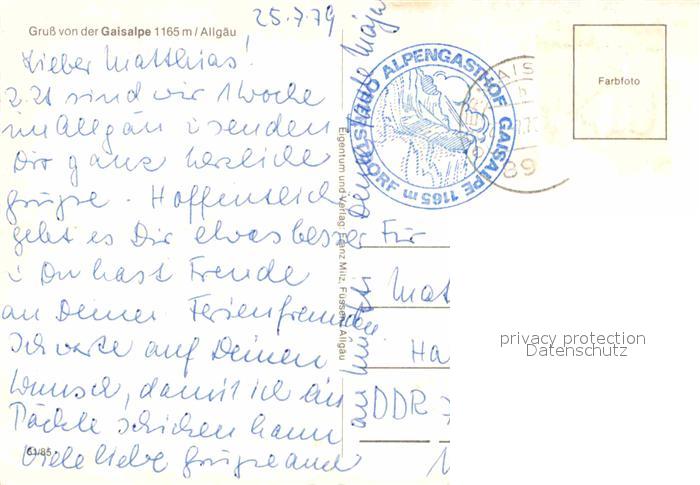 25.7.79
Gruß von der Gaisalpe 1165 m / Allgäu
Lieber Matthias!
z. Zt sind wir 1 Woche
im Allgäu u senden
Dir ganz herzliche
Grüsse. Hoffentlich
geht es Dir etwas besser
u Du hast Freude
an Deinen Ferienfreunden
Ich warte auf Deinen
Wunsch, damit ich ein
Päckle schicken kann
Viele liebe Grüsse and
61/85
Eigentum und Verlag: Franz Milz, Füssen Allgäu
ALPENGASTHOF GAISALPE 1165 m
Farbfoto
89
Für
Mat
Ha
DDR 7
privacy protection
Datenschutz